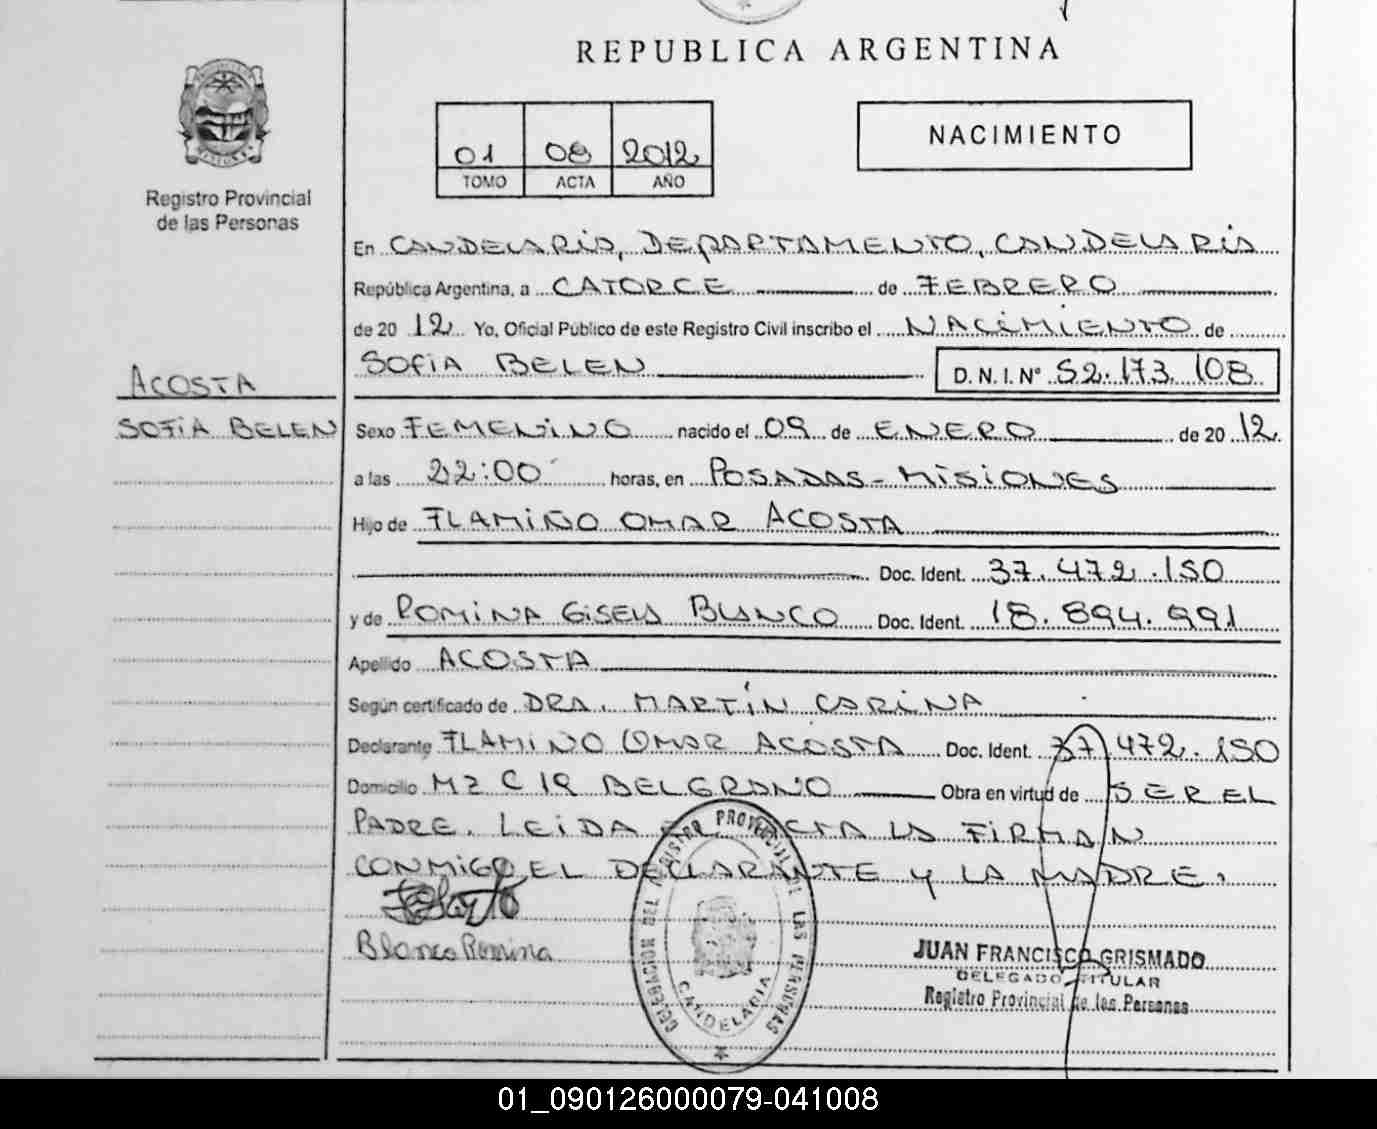 REPUBLICA ARGENTINA
Registro Provincial
de las Personas
01 08 2012
TOMO ACTA AÑO
NACIMIENTO
En CANDELARIA, DEPARTAMENTO, CANDELARIA
República Argentina, a CATORCE de FEBRERO
de 20 12 Yo, Oficial Público de este Registro Civil inscribo el NACIMIENTO de
SOFIA BELEN D. N. I. Nº 52.173.108
ACOSTA
SOFIA BELEN
Sexo FEMENINO nacido el 09 de ENERO de 20 12.
a las 22:00 horas, en POSADAS - MISIONES
Hijo de FLAMIÑO OMAR ACOSTA
Doc. Ident. 37.472.150
y de ROMINA GISELA BLANCO Doc. Ident. 18.894.991
Apellido ACOSTA
Según certificado de DRA. MARTÍN CARINA
Declarante FLAMINO OMAR ACOSTA Doc. Ident. 37.472.150
Domicilio MZ C 19 BELGRANO Obra en virtud de SER EL
PADRE. LEIDA EL ACTA LA FIRMAN
CONMIGO EL DECLARANTE Y LA MADRE.
Blanco Romina
DELEGACION DEL REGISTRO PROVINCIAL DE LAS PERSONAS
CANDELARIA
JUAN FRANCISCO GRISMADO
DELEGADO TITULAR
Registro Provincial de las Personas
01_090126000079-041008